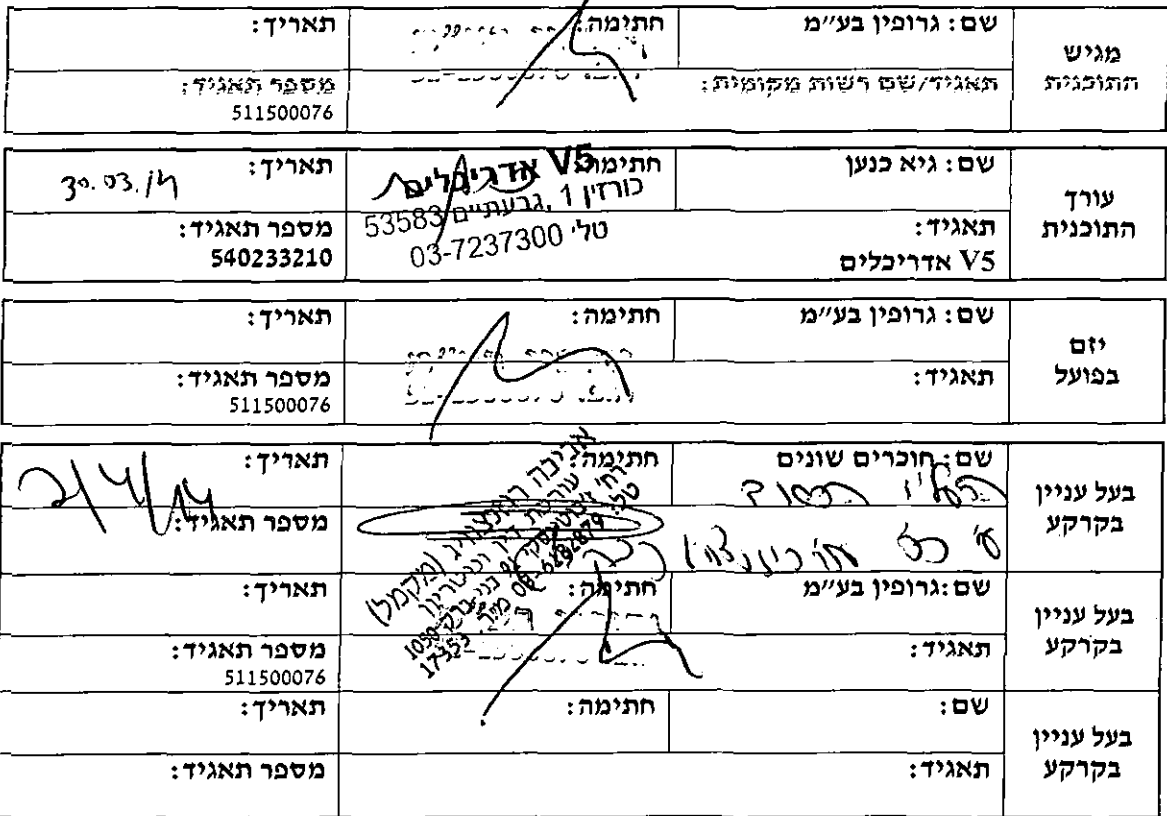 מגיש התוכנית
שם: גרופין בע״מ חתימה: תאריך:
תאגיד/שם רשות מקומית: מספר תאגיד:
511500076
עורך התוכנית
שם: גיא כנען חתימה: תאריך: 30.03.14
V5 אדריכלים
כורזין 1, גבעתיים 53583
טל׳ 03-7237300
תאגיד: מספר תאגיד:
V5 אדריכלים 540233210
יזם בפועל
שם: גרופין בע״מ חתימה: תאריך:
תאגיד: מספר תאגיד:
511500076
בעל עניין בקרקע
שם: חוכרים שונים חתימה: תאריך: 2/4/14
מספר תאגיד:
עורכת דין ונוטריון
בעל עניין בקרקע
שם: גרופין בע״מ חתימה: תאריך:
תאגיד: מספר תאגיד:
511500076
בעל עניין בקרקע
שם: חתימה: תאריך:
תאגיד: מספר תאגיד: